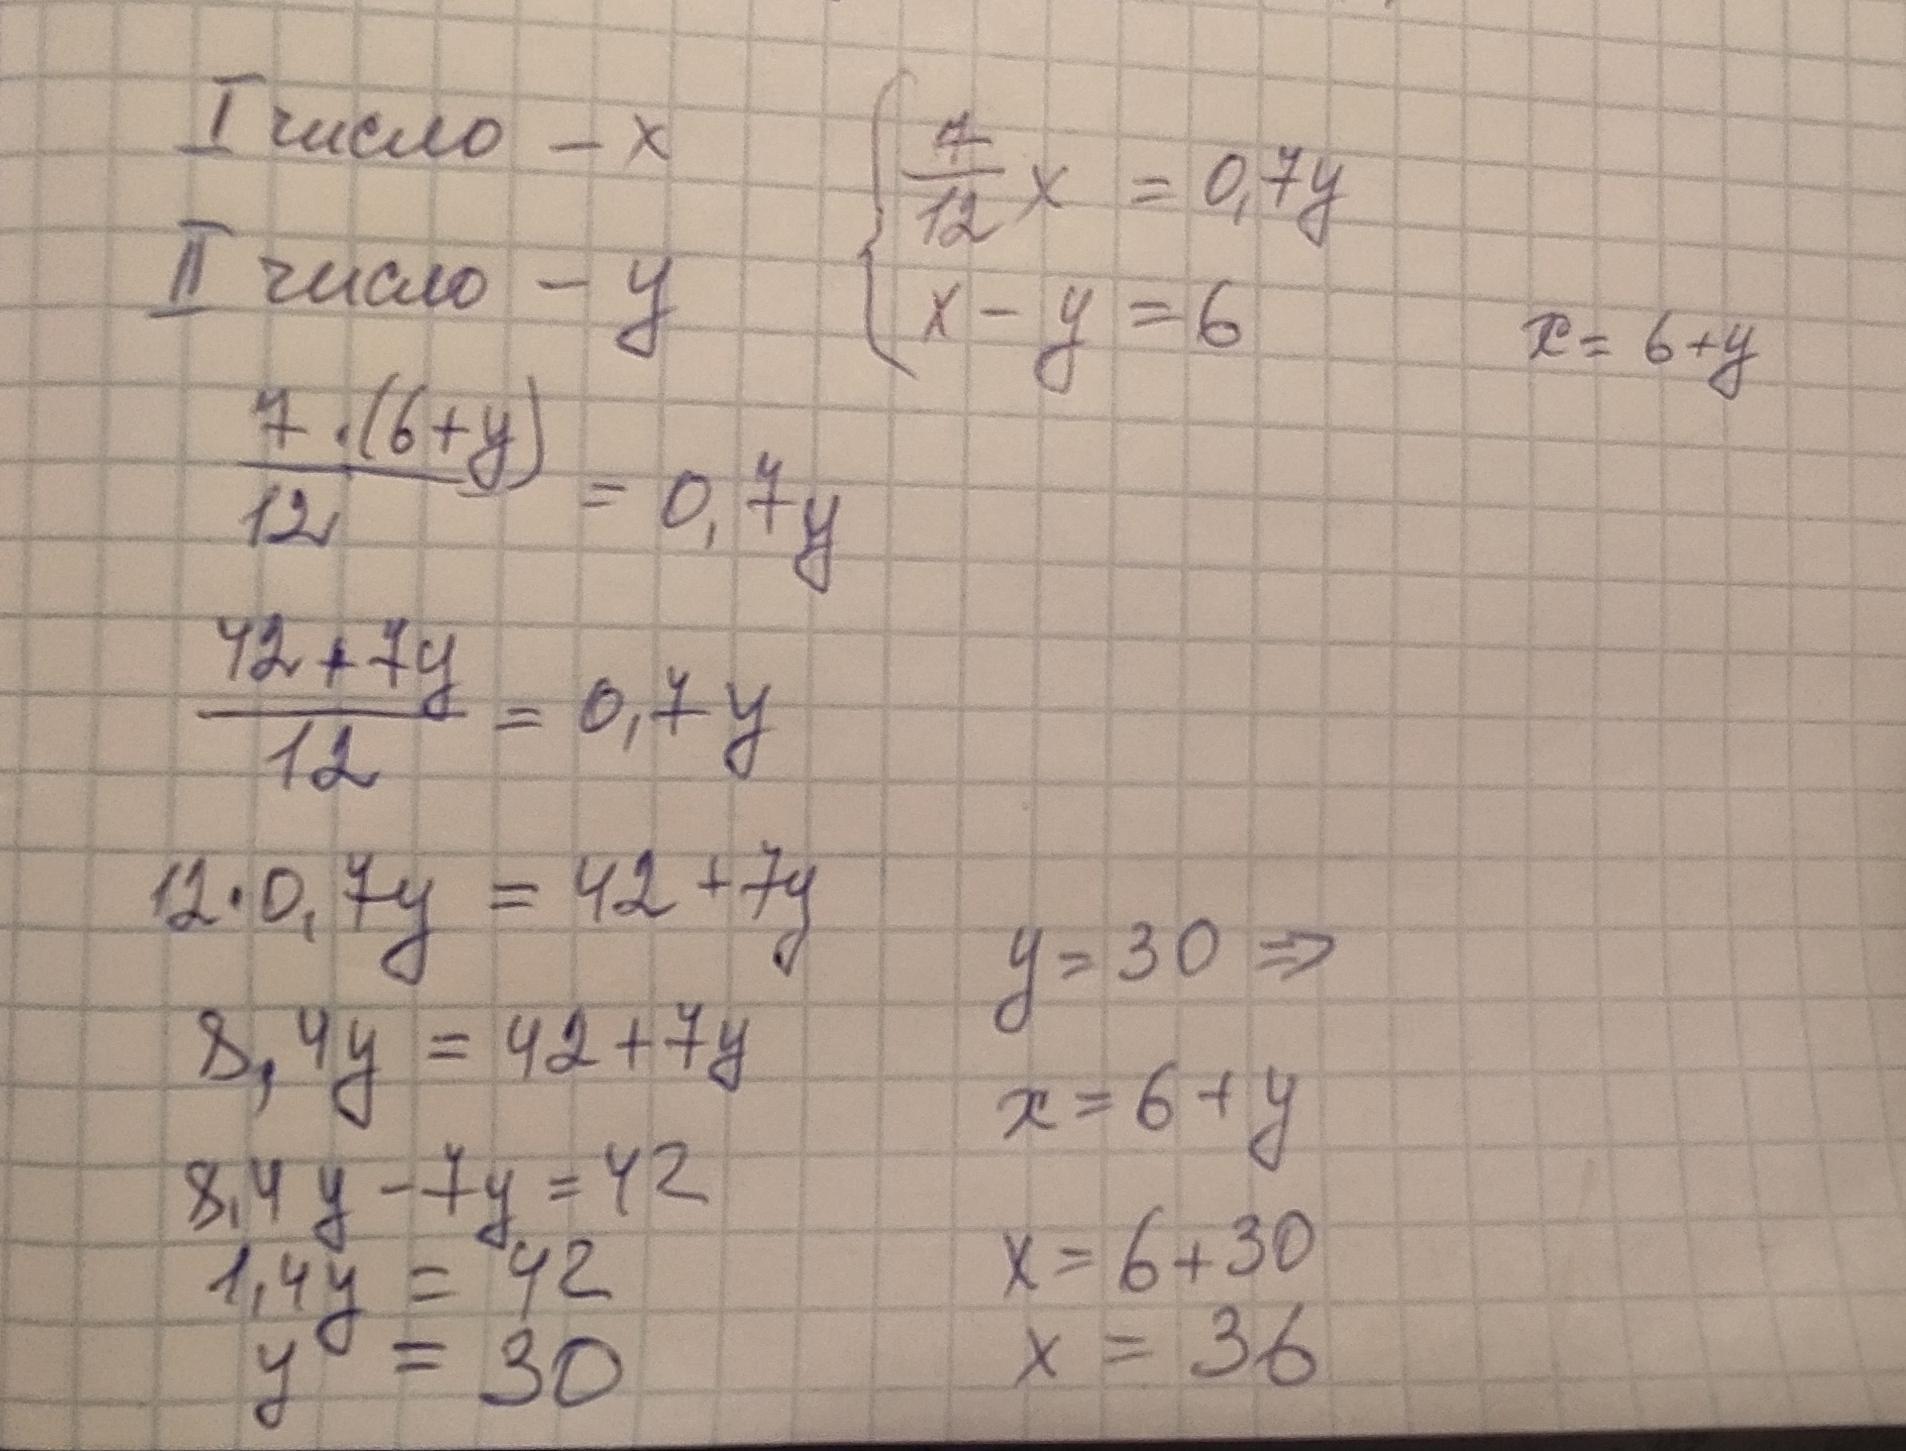 I число – x
II число – y
{ 7/12 x = 0,7y
x – y = 6
x = 6+y
7·(6+y)/12 = 0,7y
42+7y/12 = 0,7y
12·0,7y = 42+7y
8,4y = 42+7y
8,4y – 7y = 42
1,4y = 42
y = 30
y = 30 ⇒
x = 6+y
x = 6+30
x = 36